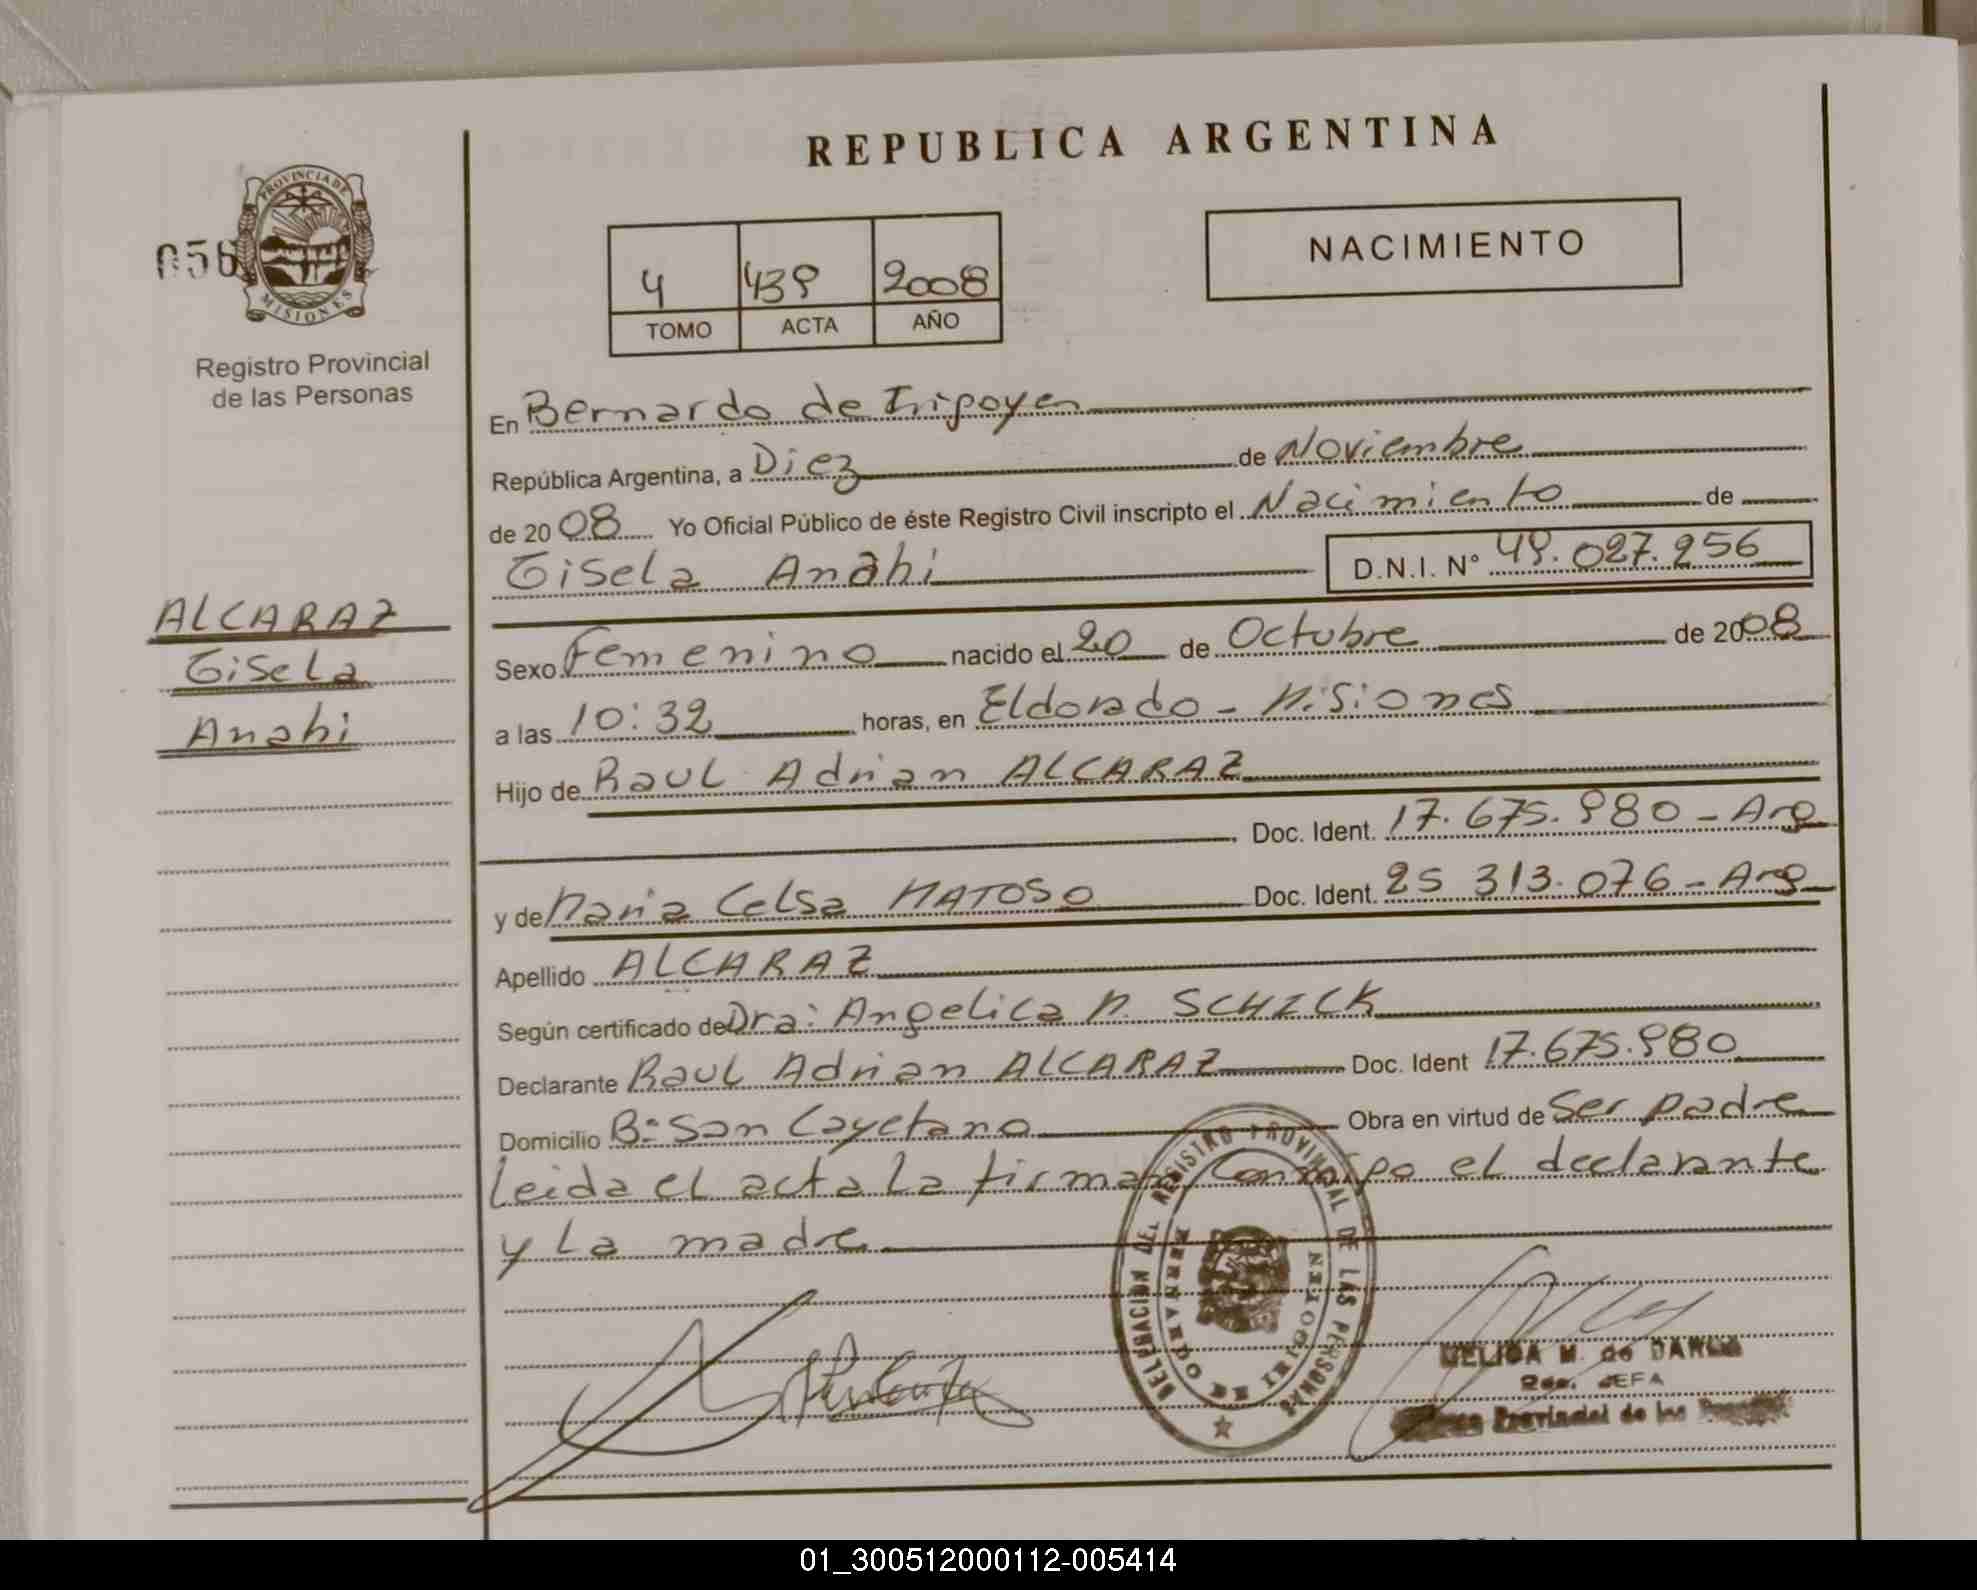 REPUBLICA ARGENTINA
PROVINCIA DE
MISIONES
056
Registro Provincial
de las Personas
NACIMIENTO
4 439 2008
TOMO ACTA AÑO
En Bernardo de Irigoyen
República Argentina, a Diez de Noviembre
de 2008 Yo Oficial Público de éste Registro Civil inscripto el Nacimiento de
Gisela Anahi D.N.I. N° 49.027.256
ALCARAZ
Gisela
Anahi
Sexo Femenino nacido el 20 de Octubre de 2008
a las 10:32 horas, en Eldorado - Misiones
Hijo de Raul Adrian ALCARAZ
Doc. Ident. 17.675.980 - Arg
y de Maria Celsa MATOSO Doc. Ident. 25 313.076 - Arg
Apellido ALCARAZ
Según certificado de Dra: Angelica M. SCHICK
Declarante Raul Adrian ALCARAZ Doc. Ident 17.675.980
Domicilio B° San Cayetano Obra en virtud de Ser padre
Leida el acta la firman Conmigo el declarante
y La madre
DELEGACION DEL REGISTRO PROVINCIAL DE LAS PERSONAS
BERNARDO DE IRIGOYEN
M. de
JEFA
Provincial de las
01_300512000112-005414